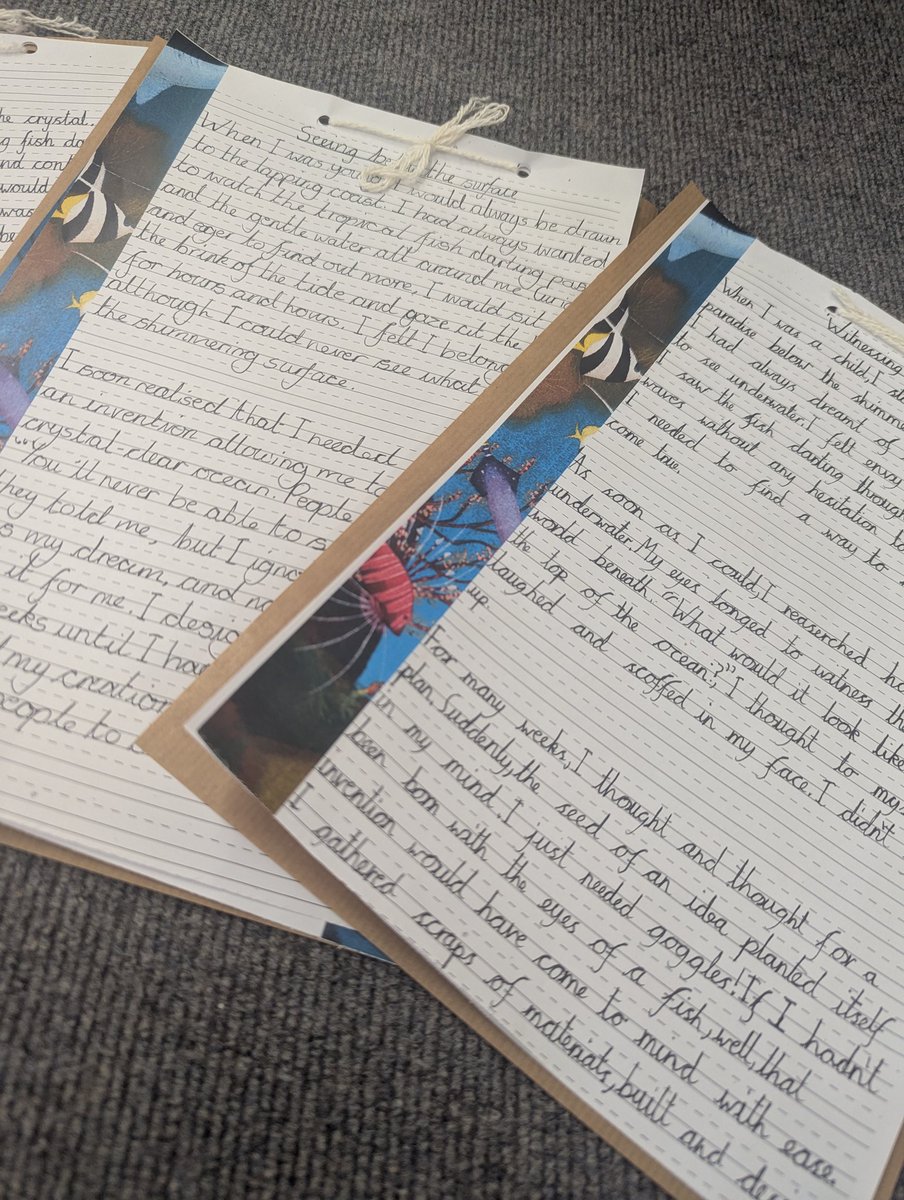 he crystal.
g fish da
and cont
would
was
be
Seeing be the surface
When I was you I would always be drawn
to the lapping coast. I had always wanted
to watch the tropical fish darting pas
and the gentle water all around me. Curi
and eager to find out more, I would sit
the brink of the tide and gaze at the
for hours and hours. I felt I belong
although I could never see what
the shimmering surface.
I soon realised that I needed
an invention allowing me to
crystal-clear ocean. People
"You'll never be able to s
they told me, but I igno
s my dream, and no
it for me. I desig
eeks until I had
d my creation
people to
Witnessing
When I was a child, I
paradise below the shimme
I had always dreamt of
to see underwater. I felt envy
I saw the fish darting through
waves without any hesitation
I needed to find a way to
come true.
As soon as I could, I reaserched ho
underwater. My eyes longed to watness the
world beneath. "What would it look like
the top of the ocean?" I thought to mys
laughed and scoffed in my face. I didn't
up.
For many weeks, I thought and thought for a
plan. Suddenly, the seed of an idea planted itself
in my mind. I just needed goggles! If I hadn't
been born with the eyes of a fish, well, that
invention would have come to mind with ease.
I gathered scraps of materials, built and de